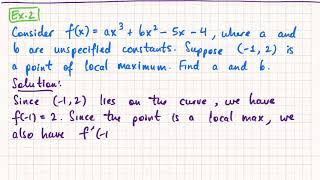 Ex.2
Consider f(x) = ax³ + 6x² - 5x - 4, where a and
b are unspecified constants. Suppose (-1, 2) is
a point of local maximum. Find a and b.
Solution:
Since (-1, 2) lies on the curve, we have
f(-1) = 2. Since the point is a local max, we
also have f'(-1